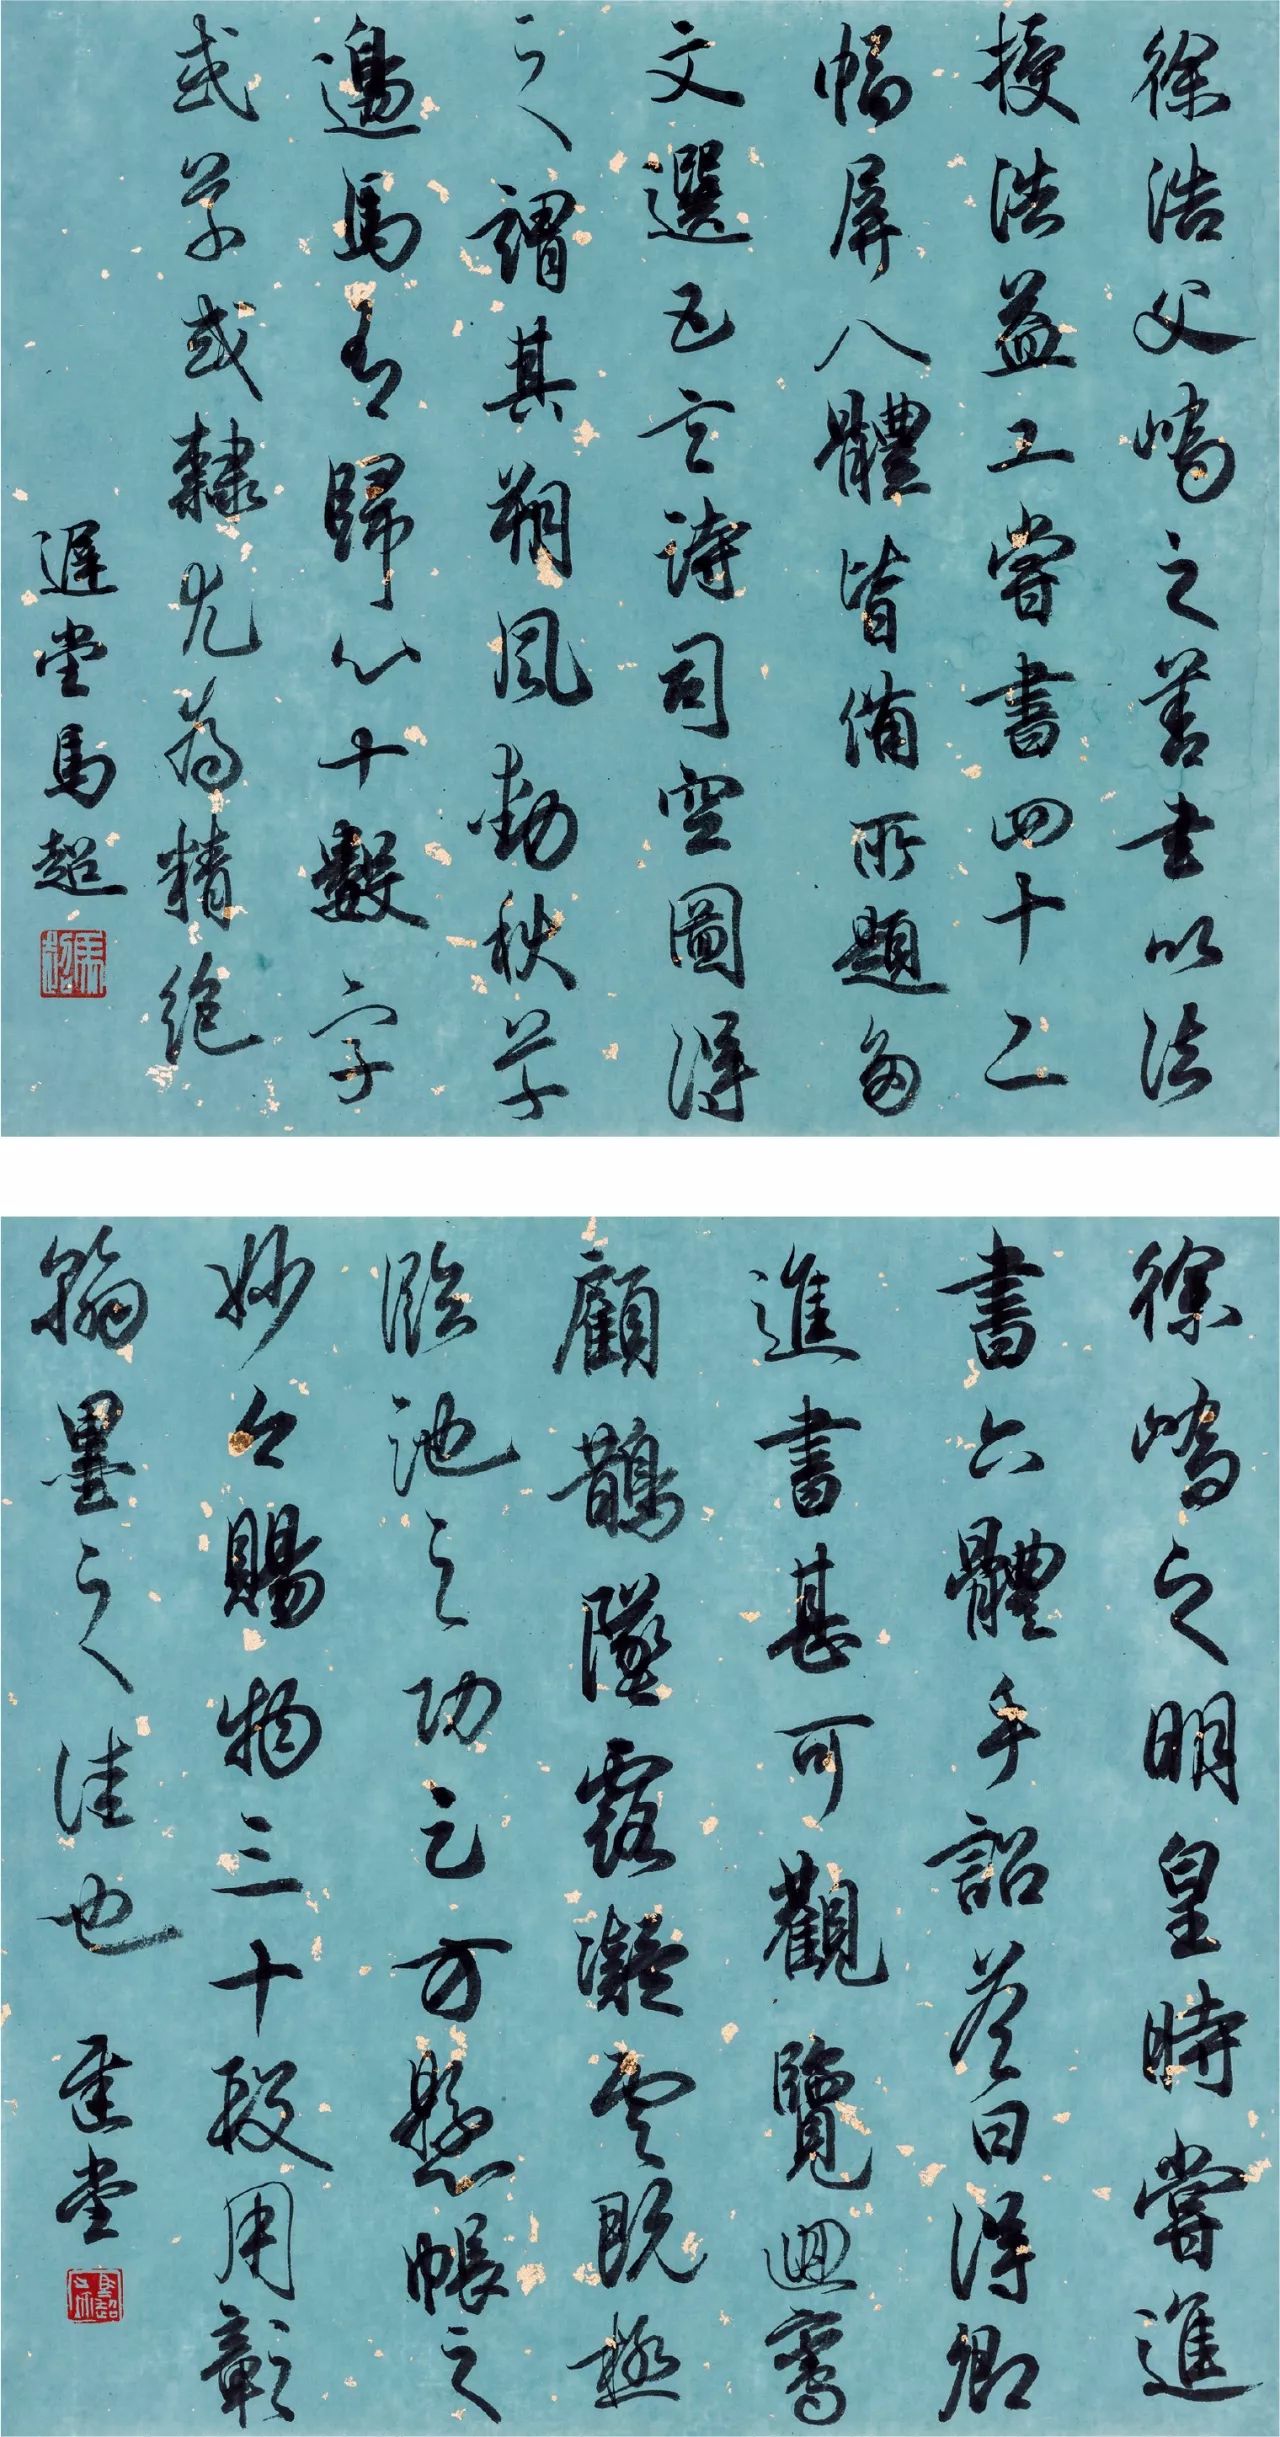 徐浩父嶠之善書以法
授浩益工嘗書四十二
幅屏八體皆備所題多
文選五言詩司空圖得
之謂其朔風動秋草
邊馬有歸心十數字
或草或隸尤為精絕
遲堂馬超
徐嶠之明皇時嘗進
書六體手詔答曰得卿
進書甚可觀覽迴鸞
顧鵲墜露凝雲既極
臨池之功乞方懸帳之
妙今賜物三十段用彰
翰墨之佳也 遲堂